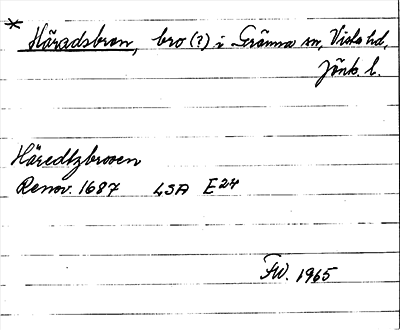 * Häradsbron, bro (?) i Gränna sn, Vista hd,
Jönk. l.
Häredtzbroen
Renov. 1687 LSA E24
FW. 1965